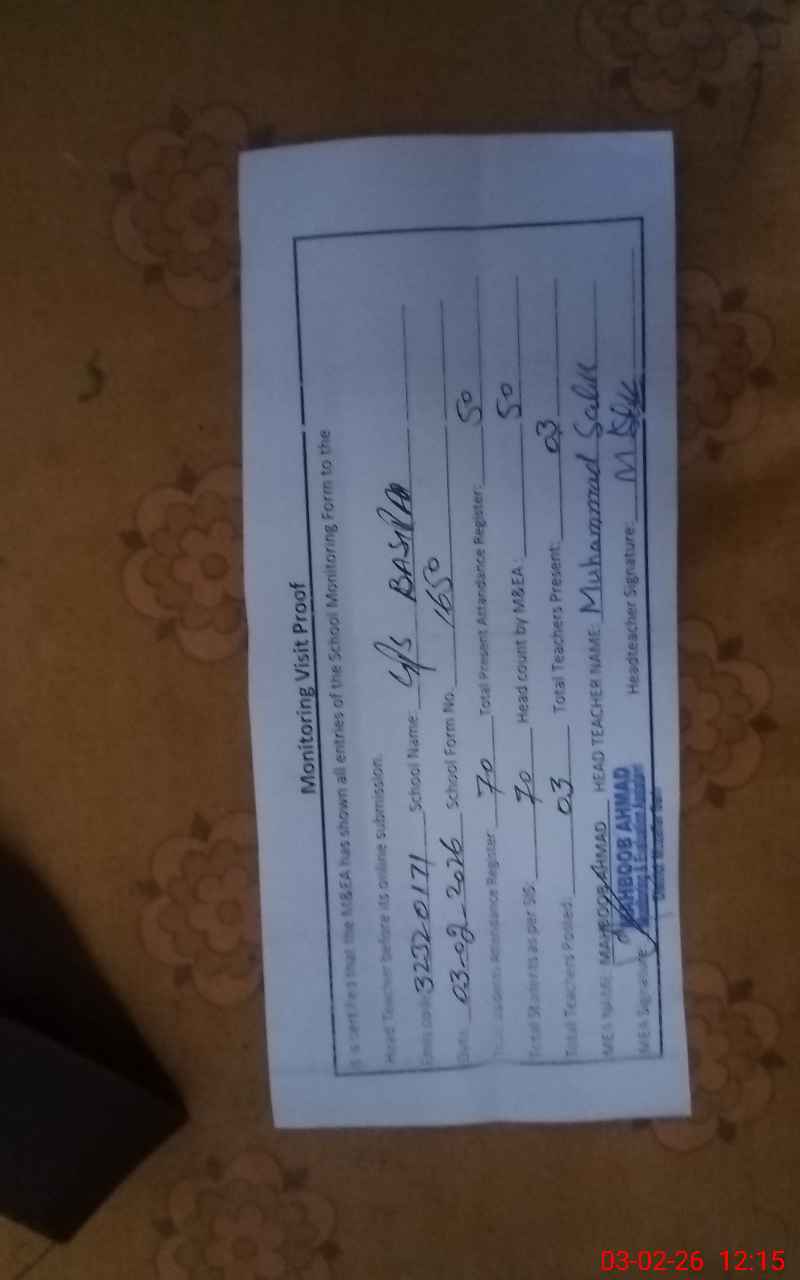 Monitoring Visit Proof
It is certified that the M&EA has shown all entries of the School Monitoring Form to the
Head Teacher before its online submission.
Emis code 32320171 School Name: G/S BASIRA
Date: 03-02-2026 School Form No. 1650
Total students Attendance Register 70 Total Present Attandance Register: 50
Total Students as per SIS: 70 Head count by M&EA: 50
Total Teachers Posted: 03 Total Teachers Present: 03
MEA NAME: MAHBOOB AHMAD HEAD TEACHER NAME: Muhammad Salik
MEA Signature Headteacher Signature:
MAHBOOB AHMAD
Monitoring & Evaluation Assistant
03-02-26 12:15